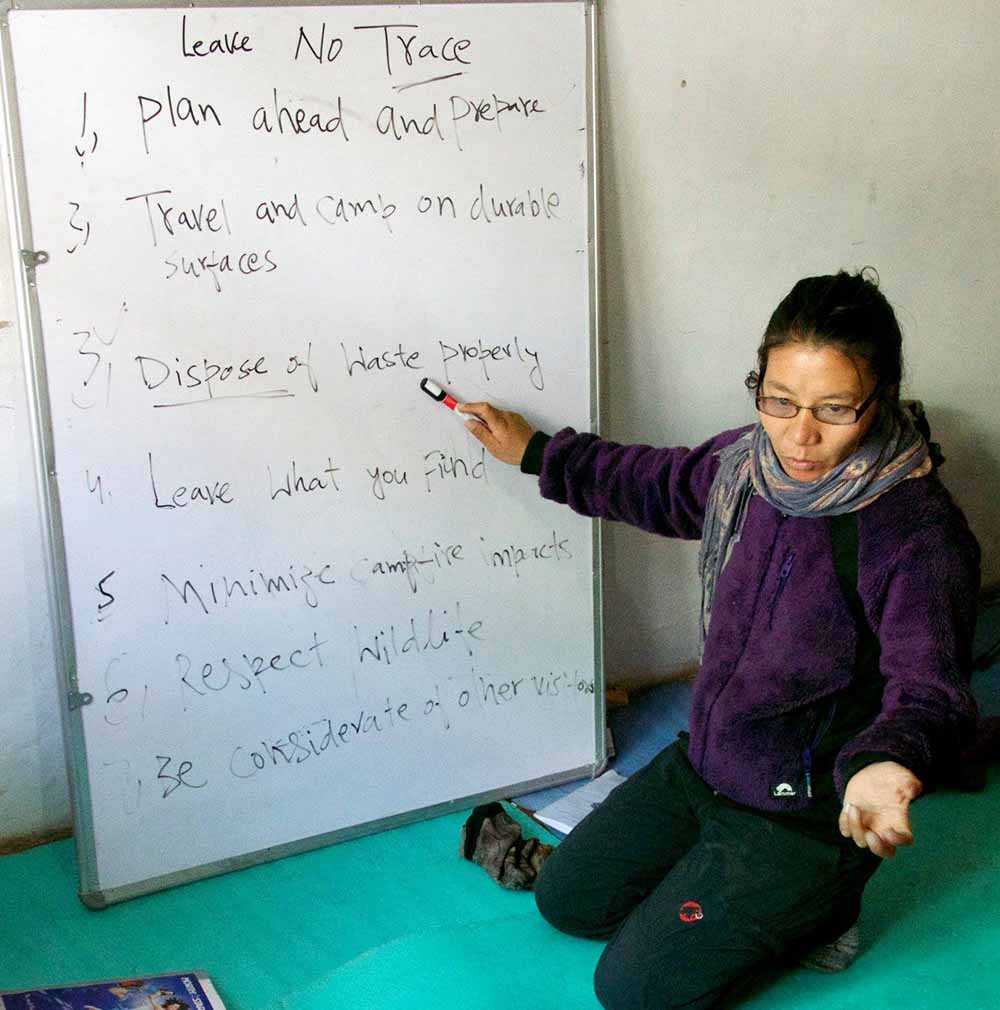 Leave No Trace
1, Plan ahead and Prepare
2, Travel and camp on durable
surfaces
3, Dispose of Waste properly
4. Leave What you Find
5 Minimize campfire impacts
6, Respect Wildlife
7, Be considerate of other visitors